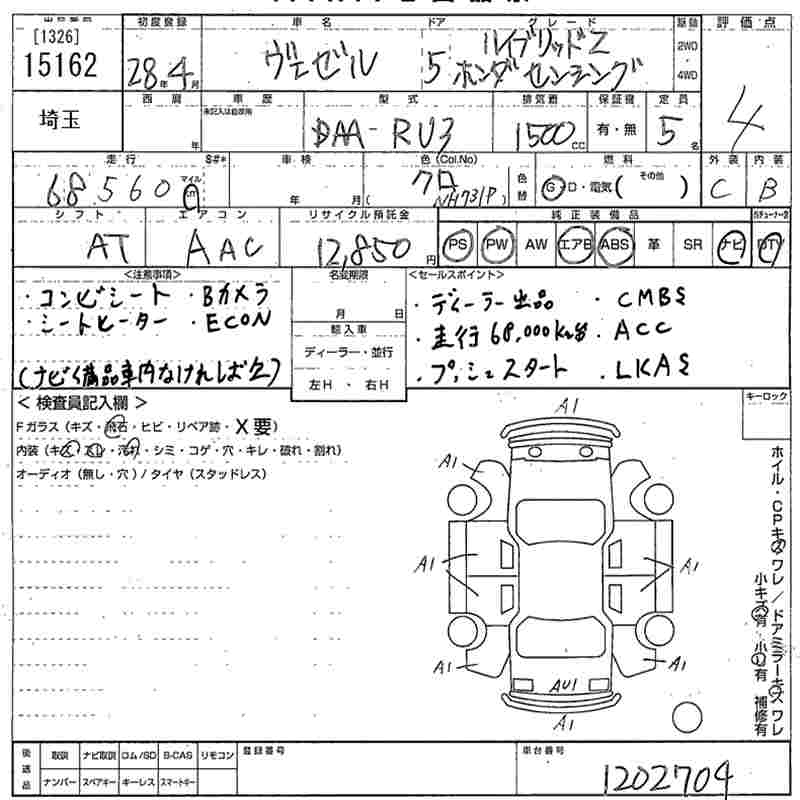 [1326]
15162
初度登録
28年4月
車名
ヴェゼル
ドア
5
グレード
ハイブリッドZ
ホンダセンシング
駆動
2WD
4WD
評価点
4
埼玉
西暦
年
車歴
未記入は自家用
型式
DAA-RU3
排気量
1500cc
保証書
有・無
定員
5名
走行
68560
マイル
km
S#*
車検
年 月
色(Col.No)
クロ
(NH731P)
色替
燃料
G・D・電気( その他 )
外装
C
内装
B
シフト
AT
エアコン
AAC
リサイクル預託金
12,850円
純正装備品
PS PW AW エアB ABS 革 SR ナビ
地デジチューナー付
DTV
<注意事項>
・コンビシート ・Bカメラ
・シートヒーター ・ECON
(ナビく備品車内なければ欠)
名変期限
月 日
輸入車
ディーラー・並行
左H ・ 右H
<セールスポイント>
・ディーラー出品 ・CMBS
・走行68,000km台 ・ACC
・プッシュスタート ・LKAS
<検査員記入欄>
Fガラス(キズ・飛石・ヒビ・リペア跡・X要)
内装(キズ・スレ・汚れ・シミ・コゲ・穴・キレ・破れ・割れ)
オーディオ(無し・穴)/タイヤ(スタッドレス)
キーロック
A1
A1
A1
A1
A1
A1
AU1
A1
ホイル・CPキズ ワレ/ドアミラーキズ ワレ
小キズ有 小凹有 補修有
後送品
取説
ナビ取説
ロム/SD
B-CAS
リモコン
ナンバー
スペアキー
キーレス
スマートキー
登録番号
車台番号
1202704